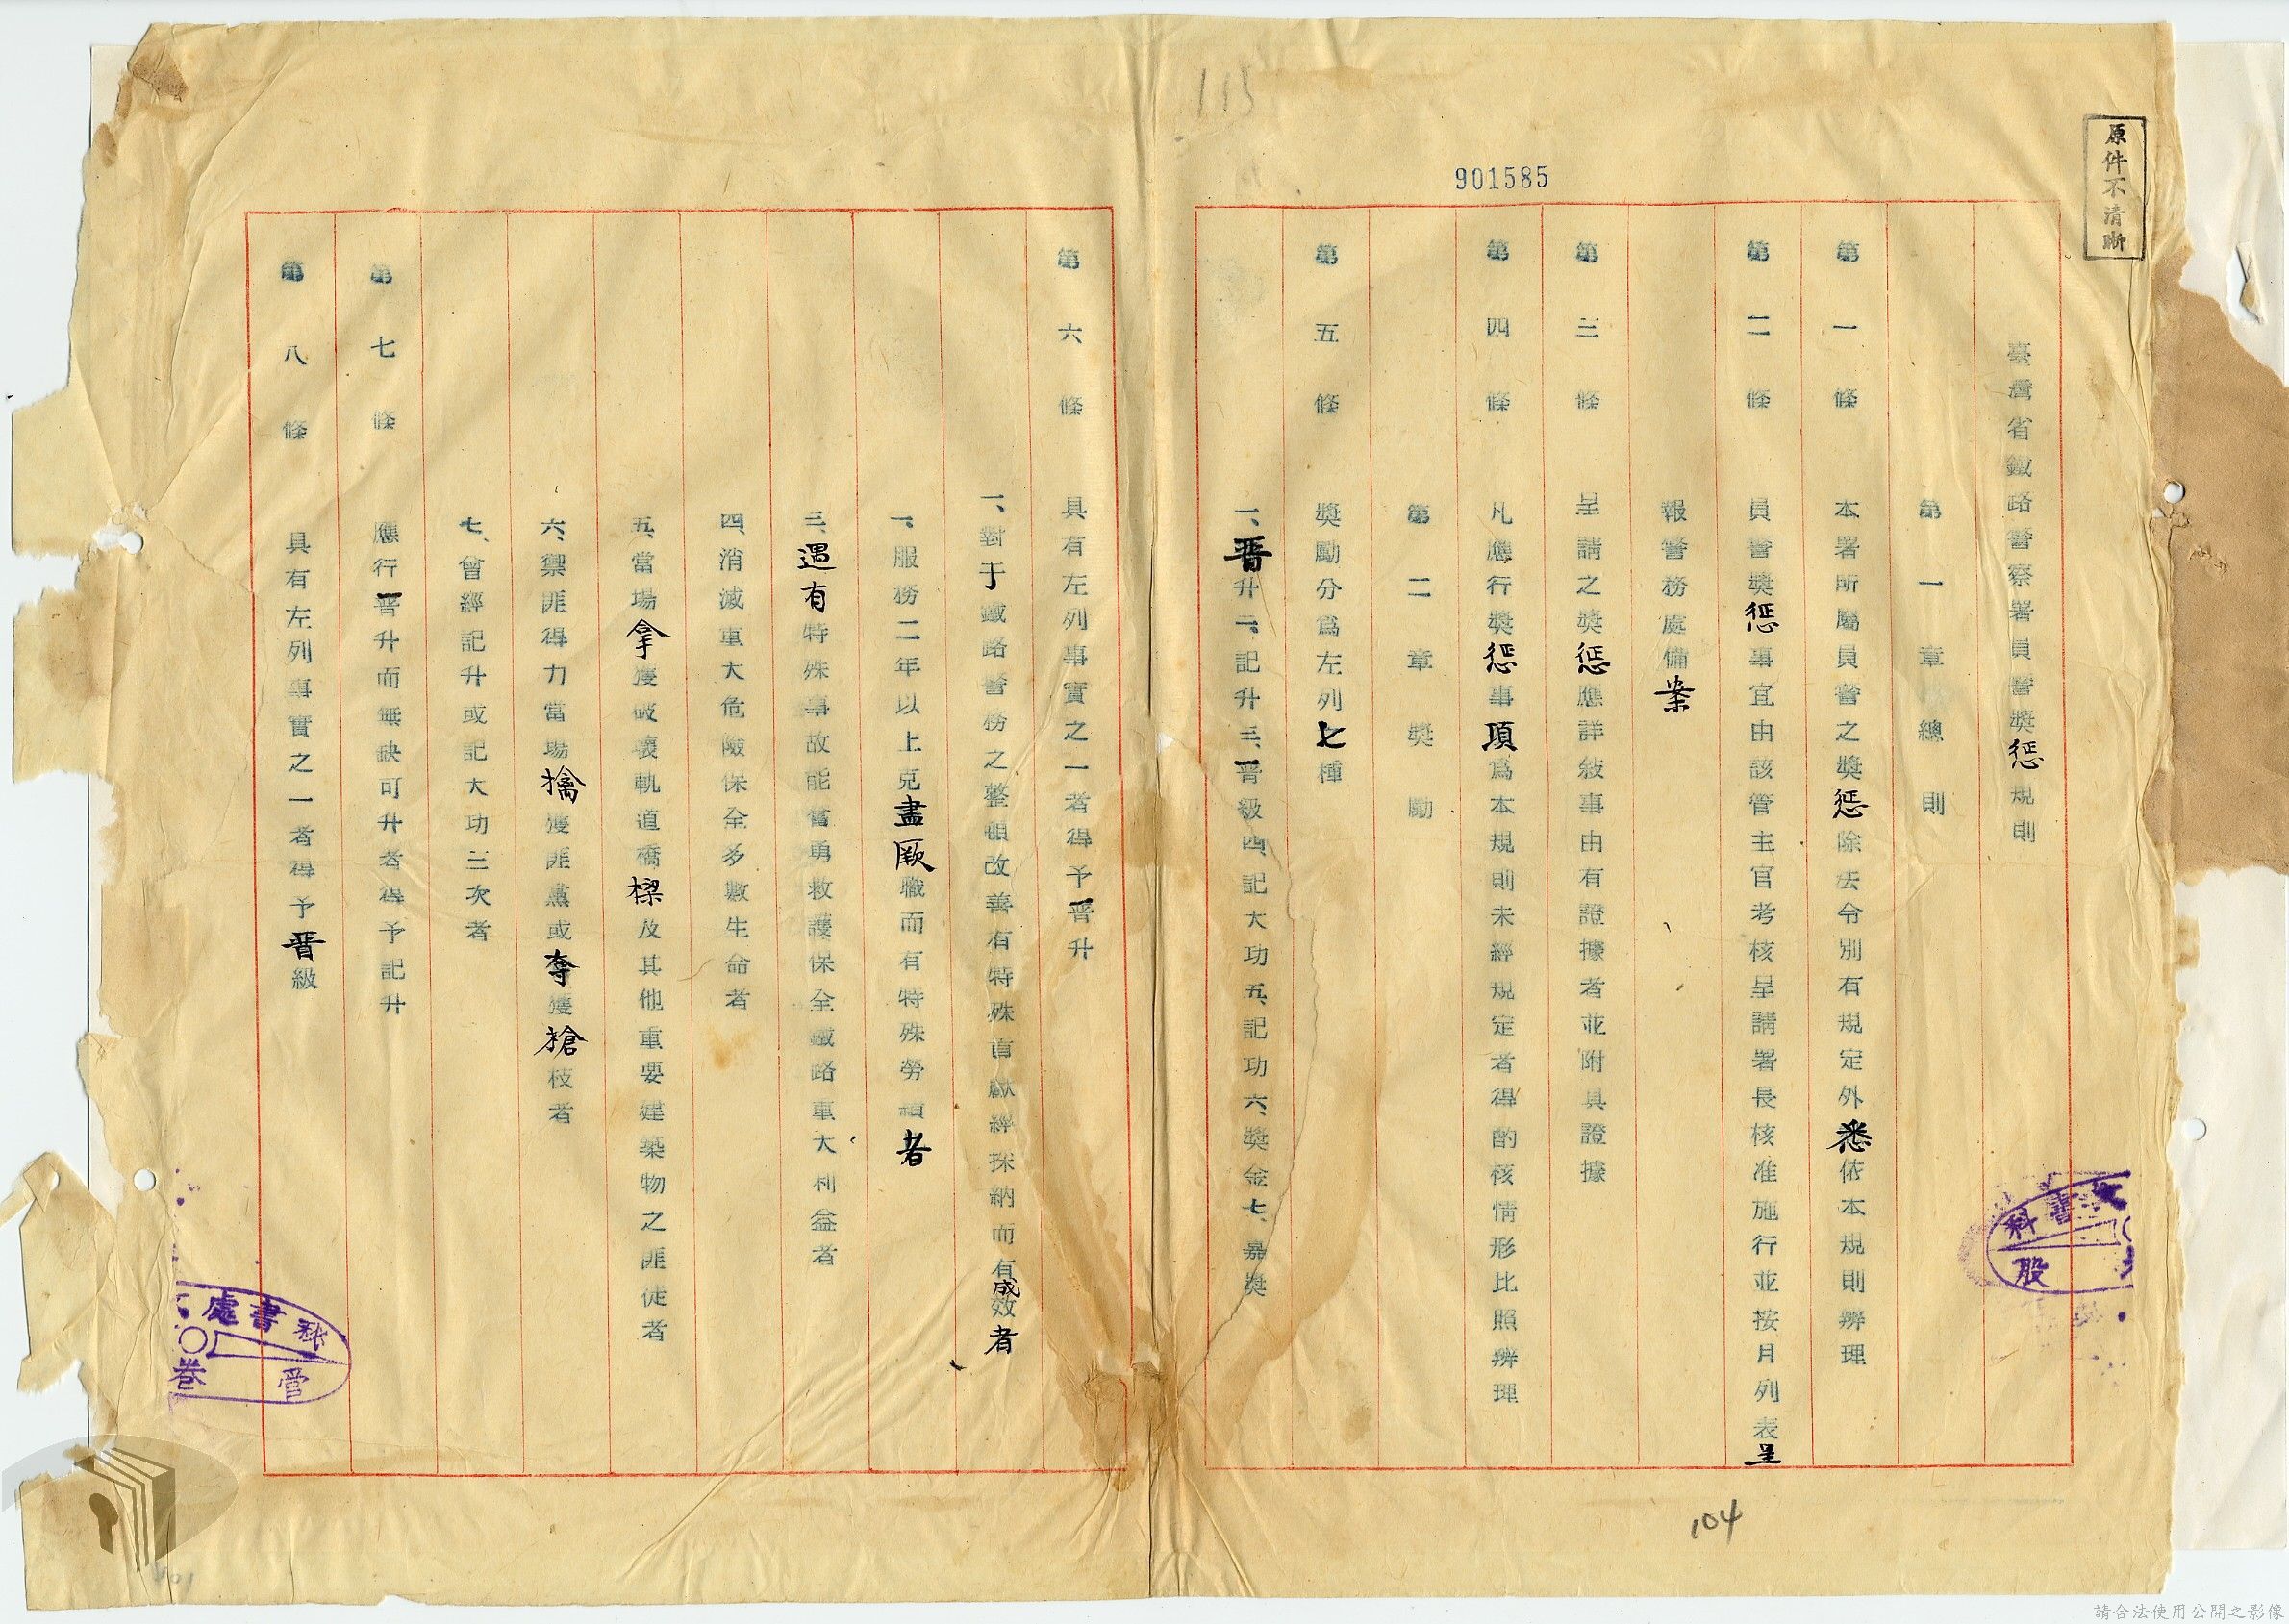 原件不清晰
115
901585
臺灣省鐵路警察署員警奬惩規則
第一章 總則
第一條 本署所屬員警之奬惩除法令別有規定外悉依本規則辦理
第二條 員警奬惩事宜由該管主官考核呈請署長核准施行並按月列表呈
報警務處備案
第三條 呈請之奬惩應詳敘事由有證據者並附具證據
第四條 凡應行奬惩事項爲本規則未經規定者得酌核情形比照辦理
第二章 奬勵
第五條 奬勵分爲左列七種
一、晋升二、記升三、晋級四、記大功五、記功六、奬金七、嘉奬
文書科
股
104
第六條 具有左列事實之一者得予晋升
一、對于鐵路警務之整頓改善有特殊貢獻經採納而有成效者
二、服務二年以上克盡厥職而有特殊勞績者
三、遇有特殊事故能奮勇救護保全鐵路重大利益者
四、消滅重大危險保全多數生命者
五、當場拿獲破壞軌道橋樑及其他重要建築物之匪徒者
六、禦匪得力當場擒獲匪黨或奪獲槍枝者
七、曾經記升或記大功三次者
第七條 應行晋升而無缺可升者得予記升
第八條 具有左列事實之一者得予晋級
秘書處
管卷
101
請合法使用公開之影像